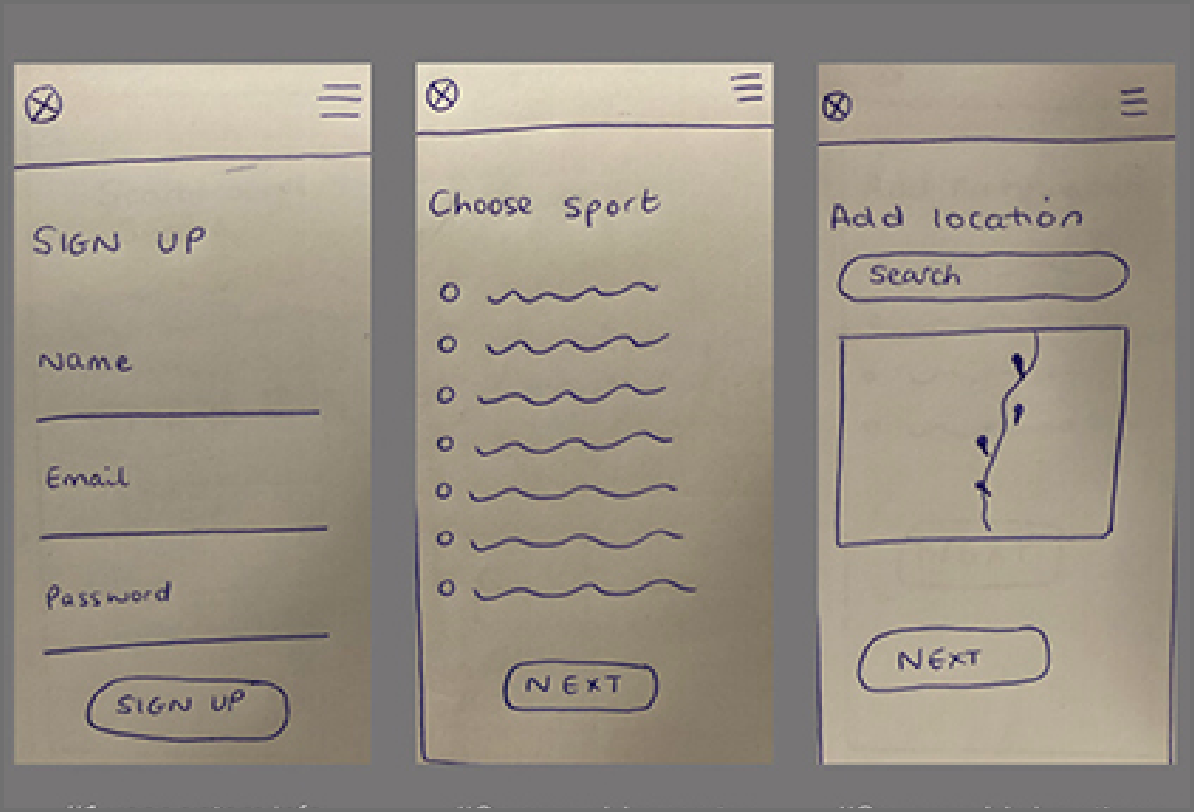 SIGN UP
Name
Email
Password
SIGN UP
Choose sport
NEXT
Add location
Search
NEXT